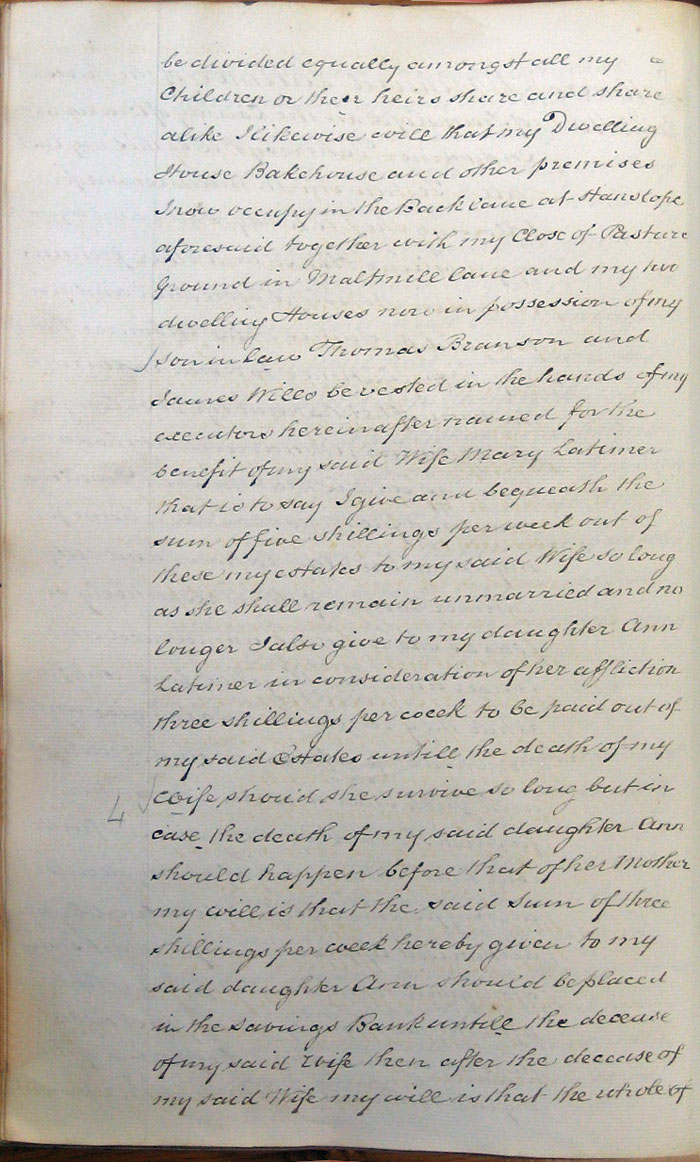 be divided equally amongst all my
Children or their heirs share and share
alike I likewise will that my Dwelling
House Bakehouse and other premises
I now occupy in the Back lane at Hanslope
aforesaid together with my Close of Pasture
Ground in Maltmill lane and my two
dwelling Houses now in possession of my
son in law Thomas Branson and
James Wills be vested in the hands of my
executors hereinafter named for the
benefit of my said Wife Mary Latimer
that is to say I give and bequeath the
sum of five shillings per week out of
these my estates to my said Wife so long
as she shall remain unmarried and no
longer I also give to my daughter Ann
Latimer in consideration of her affliction
three shillings per week to be paid out of
my said Estates untill the death of my
wife should she survive so long but in
4
case the death of my said daughter Ann
should happen before that of her Mother
my will is that the said Sum of three
shillings per week hereby given to my
said daughter Ann should be placed
in the Savings Bank untill the decease
of my said Wife then after the decease of
my said Wife my will is that the whole of